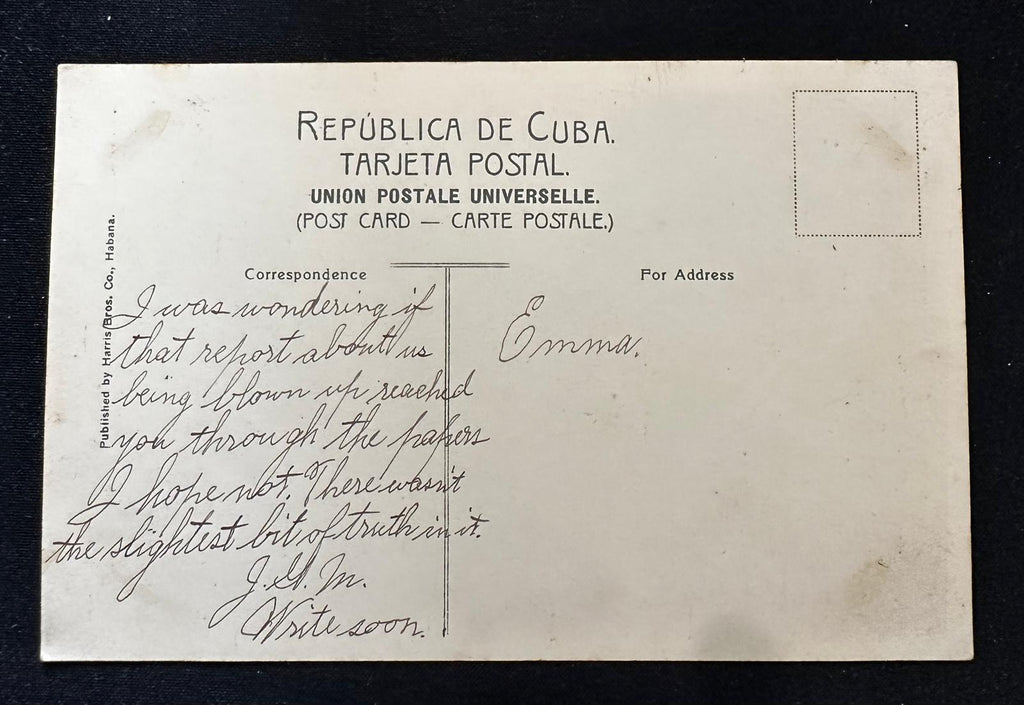 REPÚBLICA DE CUBA.
TARJETA POSTAL.
UNION POSTALE UNIVERSELLE.
(POST CARD — CARTE POSTALE.)
Published by Harris Bros. Co., Habana.
Correspondence
I was wondering if
that report about us
being blown up reached
you through the papers
I hope not. There wasn't
the slightest bit of truth in it.
J. G. M.
Write soon.
For Address
Emma.